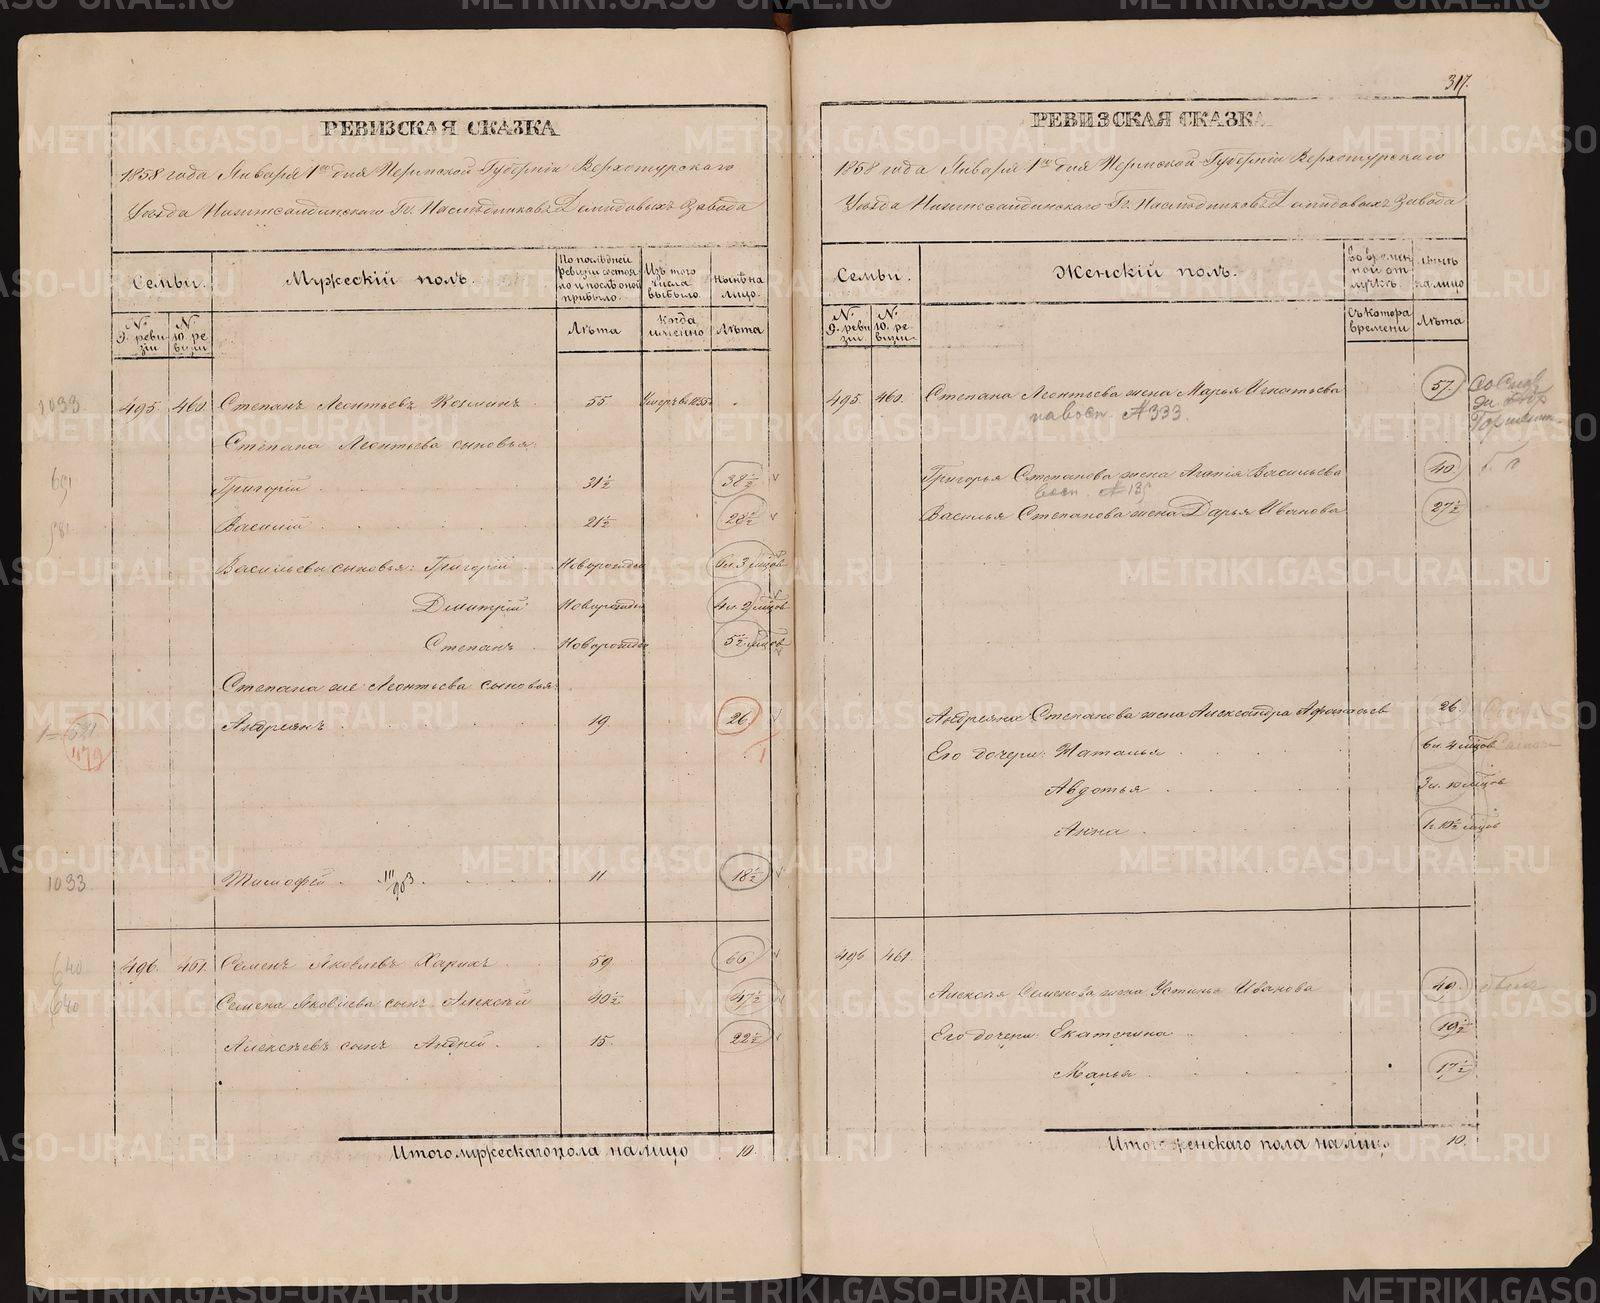 РЕВИЗСКАЯ СКАЗКА
1858 года Января 1го дня Пермской Губернiи Верхотурскаго
Уѣзда Нижнесалдинскаго Гг. Наслѣдниковъ Демидовыхъ Завода
Семьи.
Мужескiй полъ.
По послѣдней ревизiи состояло и послѣ оной прибыло.
Изъ того числа выбыло.
Нынѣ на лицо.
№ 9. ревизiи
№ 10. ревизiи
Лѣта
Когда именно
Лѣта
1033 495. 460. Степанъ Леонтьевъ Козминъ 55 Умеръ въ 1855
Степана Леонтьева сыновья:
691 Григорiй 31½ 38½
581 Василiй 21½ 28½
Васильева сыновья: Григорiй Новорожден 6л. 3 мѣсцов
Дмитрiй Новорожден 4л. 2 мѣсцов
Степанъ Новорожден 5½ мѣсцов
Степана же Леонтьева сыновья:
Андреянъ 19. 26.
479
1033 Тимофей 11 18½
640 496. 461. Семенъ Яковлевъ Харинъ 59 66
640 Семена Яковлева сынъ Алексѣй 40½ 47½
Алексѣевъ сынъ Андрей 15. 22½
Итого мужескаго пола на лицо 10.
317.
РЕВИЗСКАЯ СКАЗКА
1858 года Января 1го дня Пермской Губернiи Верхотурскаго
Уѣзда Нижнесалдинскаго Гг. Наслѣдниковъ Демидовыхъ Завода
Семьи.
Женскiй полъ.
Во временной отлучкѣ.
Нынѣ на лицо
№ 9. ревизiи
№ 10. ревизiи.
Съ котора времени
Лѣта
495. 460. Степана Леонтьева жена Марья Игнатьева 57.
№ 333.
Григорья Степанова жена Агапiя Васильева 40
№ 135
Василья Степанова жена Дарья Иванова 27½
Андреяна Степанова жена Александра Афанасьев 26.
Его дочери: Наталья 6л. 4 мѣсцов
Авдотья 3л. 10 мѣсцов
Анна 1г. 10½ мѣсцов
496 461.
Алексѣя Семенова жена Устинья Иванова 49.
Его дочери: Екатерина 19½
Марья 17½
Итого женскаго пола на лицо 10.
METRIKI.GASO-URAL.RU